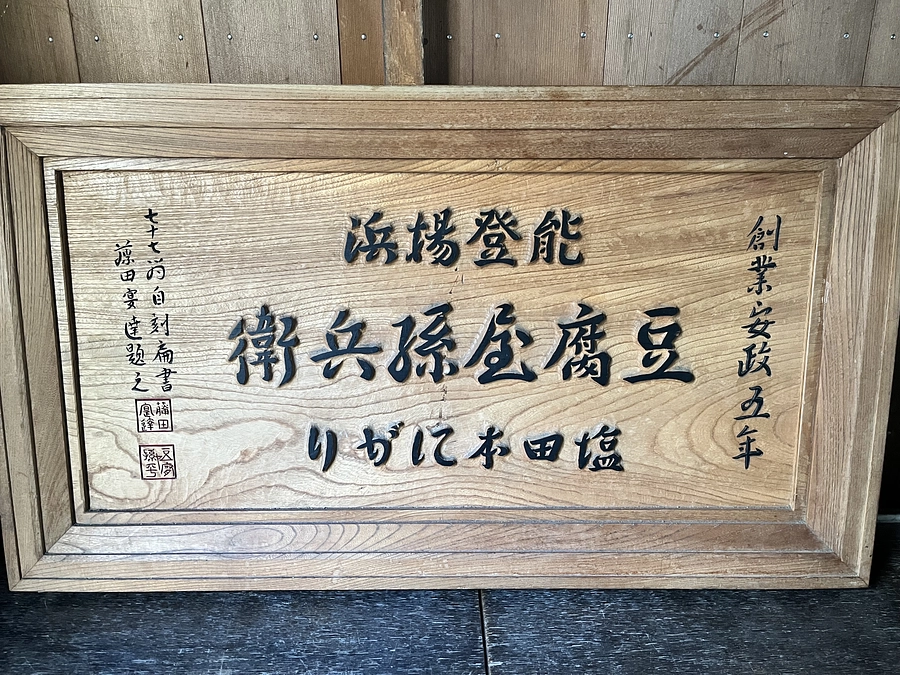 創業安政五年
能登揚浜
豆腐屋孫兵衛
塩田本にがり
七十七翁自刻扁書
藤田宴達題之